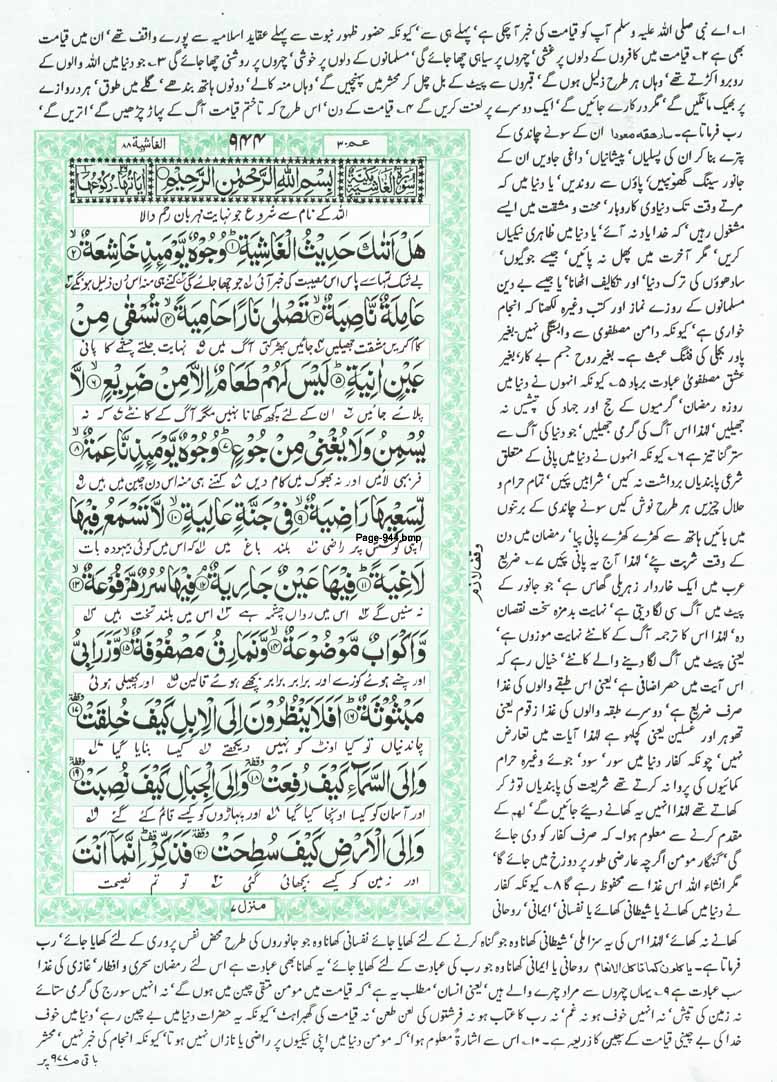 ۱۔ اے نبی صلی اللہ علیہ وسلم آپ کو قیامت کی خبر آچکی ہے‘ پہلے ہی سے‘ کیونکہ حضور ظہور نبوت سے پہلے عقاید اسلامیہ سے پورے واقف تھے‘ ان میں قیامت
بھی ہے ۲۔ قیامت میں کافروں کے دلوں پر غشی‘ چہروں پر سیاہی چھا جائے گی‘ مسلمانوں کے دلوں پر خوشی‘ چہروں پر روشنی چھا جائے گی ۳۔ جو دنیا میں اللہ والوں کے
روبرو اکڑتے تھے‘ وہاں ہر طرح ذلیل ہوں گے‘ قبروں سے پیٹ کے بل چل کر محشر میں پہنچیں گے‘ وہاں منہ کالے‘ دونوں ہاتھ بندھے‘ گلے میں طوق‘ ہر دروازے
پر بھیک مانگیں گے‘ مگر دھکارے جائیں گے‘ ایک دوسرے پر لعنت کریں گے ۴۔ قیامت کے دن‘ اس طرح کہ تاختم قیامت آگ کے پہاڑ چڑھیں گے‘ اتریں گے‘
رب فرماتا ہے۔ سارھقہ صعودا ان کے سونے چاندی کے
پترے بنا کر ان کی پسلیاں‘ پیشانیاں‘ داغی جاویں ان کے
جانور سینگ گھونپیں‘ پاؤں سے روندیں‘ یا دنیا میں کہ
مرتے وقت تک دنیاوی کاروبار‘ محنت و مشقت میں ایسے
مشغول رہیں‘ کہ خدا یاد نہ آئے‘ یا دنیا میں ظاہری نیکیاں
کریں‘ مگر آخرت میں پھل نہ پائیں‘ جیسے جوگیوں‘
سادھوؤں کی ترک دنیا‘ اور تکالیف اٹھانا‘ یا جیسے بے دین
مسلمانوں کے روزے نماز اور کتب وغیرہ لکھنا کہ انجام
خواری ہے‘ کیونکہ دامن مصطفوی سے وابستگی نہیں۔ بغیر
پاور بجلی کی فٹنگ عبث ہے۔ بغیر روح جسم بے کار‘ بغیر
عشق مصطفویٰ عبادت برباد ۵۔ کیونکہ انہوں نے دنیا میں
روزہ رمضان‘ گرمیوں کے حج اور جہاد کی تپشیں نہ
جھیلیں‘ لہٰذا اس آگ کی گرمی جھیلیں‘ جو دنیا کی آگ سے
ستر گنا تیز ہے ۶۔ کیونکہ انہوں نے دنیا میں پانی کے متعلق
شرعی پابندیاں برداشت نہ کیں‘ شرابیں پئیں‘ تمام حرام و
حلال چیزیں ہر طرح نوش کیں سونے چاندی کے برتنوں
میں بائیں ہاتھ سے کھڑے کھڑے پانی پیا‘ رمضان میں دن
کے وقت شربت پئے‘ لہٰذا آج یہ پانی پئیں ۷۔ ضریع
عرب میں ایک خاردار زہریلی گھاس ہے‘ جو جانور کے
پیٹ میں آگ سی لگا دیتی ہے‘ نہایت بدمزہ سخت نقصان
دہ‘ لہٰذا اس کا ترجمہ آگ کے کانٹے نہایت موزوں ہے‘
یعنی پیٹ میں آگ لگا دینے والے کانٹے‘ خیال رہے کہ
اس آیت میں حصر اضافی ہے‘ یعنی اس طبقے والوں کی غذا
صرف ضریع ہے‘ دوسرے طبقہ والوں کی غذا زقوم یعنی
تھوہر اور غسلین یعنی کچلہو ہے لہٰذا آیات میں تعارض
نہیں‘ چونکہ کفار دنیا میں سور‘ سود‘ جوئے وغیرہ حرام
کمائیوں کی پروا نہ کرتے تھے شریعت کی پابندیاں توڑ کر
کھاتے تھے لہٰذا انہیں یہ کھانے دیئے جائیں گے‘ لھم کے
مقدم کرنے سے معلوم ہوا۔ کہ صرف کفار کو دی جائے
گی‘ گنہگار مومن اگرچہ عارضی طور پر دوزخ میں جائے گا
مگر انشاء اللہ اس غذا سے محفوظ رہے گا ۸۔ کیونکہ کفار
نے دنیا میں کھانے یا شیطانی کھائے یا نفسانی‘ ایمانی‘ روحانی
الغاشیۃ ۸۸ ۹۴۴ عم ۳۰
سورۃ الغاشیۃ مکیۃ بسم اللہ الرحمن الرحیم
اللہ کے نام سے شروع جو نہایت مہربان رحم والا
هَلْ اَتٰىكَ حَدِیْثُ الْغَاشِیَةِ ۱ وُجُوْهٌ یَّوْمَىٕذٍ خَاشِعَةٌ ۲
بے شک تمہارے پاس اس مصیبت کی خبر آئی جو چھا جائے گی کتنے ہی منہ اس دن ذلیل ہوں گے
عَامِلَةٌ نَّاصِبَةٌ ۳ تَصْلٰى نَارًا حَامِیَةً ۴ تُسْقٰى مِنْ
کام کریں مشقت جھیلیں جائیں بھڑکتی آگ میں نہایت جلتے چشمے کا پانی
عَیْنٍ اٰنِیَةٍ ۵ لَیْسَ لَهُمْ طَعَامٌ اِلَّا مِنْ ضَرِیْعٍ ۶ لَّا
پلائے جائیں ان کے لئے کچھ کھانا نہیں مگر آگ کے کانٹے کہ نہ
یُسْمِنُ وَ لَا یُغْنِیْ مِنْ جُوْعٍ ۷ وُجُوْهٌ یَّوْمَىٕذٍ نَّاعِمَةٌ ۸
فربہی لائیں اور نہ بھوک میں کام دیں کتنے ہی منہ اس دن چین میں ہیں
لِّسَعْیِهَا رَاضِیَةٌ ۹ فِیْ جَنَّةٍ عَالِیَةٍ ۱۰ لَّا تَسْمَعُ فِیْهَا
اپنی کوشش پر راضی بلند باغ میں کہ اس میں کوئی بیہودہ بات
Page-944.bmp
لَاغِیَةً ۱۱ فِیْهَا عَیْنٌ جَارِیَةٌ ۱۲ فِیْهَا سُرُرٌ مَّرْفُوْعَةٌ ۱۳
نہ سنیں گے اس میں رواں چشمہ ہے اس میں بلند تخت ہیں
وقف لازم
وَّ اَكْوَابٌ مَّوْضُوْعَةٌ ۱۴ وَّ نَمَارِقُ مَصْفُوْفَةٌ ۱۵ وَّ زَرَابِیُّ
اور چنے ہوئے کوزے اور برابر برابر بچھے ہوئے قالین اور پھیلی ہوئی
مَبْثُوْثَةٌ ۱۶ اَفَلَا یَنْظُرُوْنَ اِلَى الْاِبِلِ كَیْفَ خُلِقَتْ ۱۷
چاندنیاں تو کیا اونٹ کو نہیں دیکھتے کیسا بنایا گیا
وَ اِلَى السَّمَآءِ كَیْفَ رُفِعَتْ ۱۸ وَ اِلَى الْجِبَالِ كَیْفَ نُصِبَتْ ۱۹
اور آسمان کو کیسا اونچا کیا گیا اور پہاڑوں کو کیسے قائم کئے گئے
وَ اِلَى الْاَرْضِ كَیْفَ سُطِحَتْ ۲۰ فَذَكِّرْ اِنَّمَاۤ اَنْتَ
اور زمین کو کیسے بچھائی گئی تو تم نصیحت
منزل ۷
کھانے نہ کھائے‘ لہٰذا اس کی یہ سزا ملی‘ شیطانی کھانا وہ جو گناہ کرنے کے لئے کھایا جائے نفسانی کھانا وہ جو جانوروں کی طرح محض نفس پروری کے لئے کھایا جائے‘ رب
فرماتا ہے۔ یاکلون کما تاکل الانعام روحانی یا ایمانی کھانا وہ جو رب کی عبادت کے لئے کھایا جائے‘ یہ کھانا بھی عبادت ہے اس لئے رمضان سحری و افطار‘ غازی کی غذا
سب عبادت ہے ۹۔ یہاں چہروں سے مراد چہرے والے ہیں‘ یعنی انسان‘ مطلب یہ ہے‘ کہ قیامت میں مومن متقی چین میں ہوں گے‘ نہ انہیں سورج کی گرمی ستائے
نہ زمین کی تپش‘ نہ انہیں خوف ہو نہ غم‘ نہ رب کا عتاب ہو نہ فرشتوں کی لعن طعن‘ نہ قیامت کی گھبراہٹ‘ کیونکہ یہ حضرات دنیا میں بے چین رہے‘ دنیا میں خوف
خدا کی بے چینی قیامت کے چین کا ذریعہ ہے۔ ۱۰۔ اس سے اشارۃً معلوم ہوا‘ کہ مومن دنیا میں اپنی نیکیوں پر راضی یا نازاں نہیں ہوتا‘ کیونکہ انجام کی خبر نہیں‘ محشر
باقی صہ ۹۷۷ پر